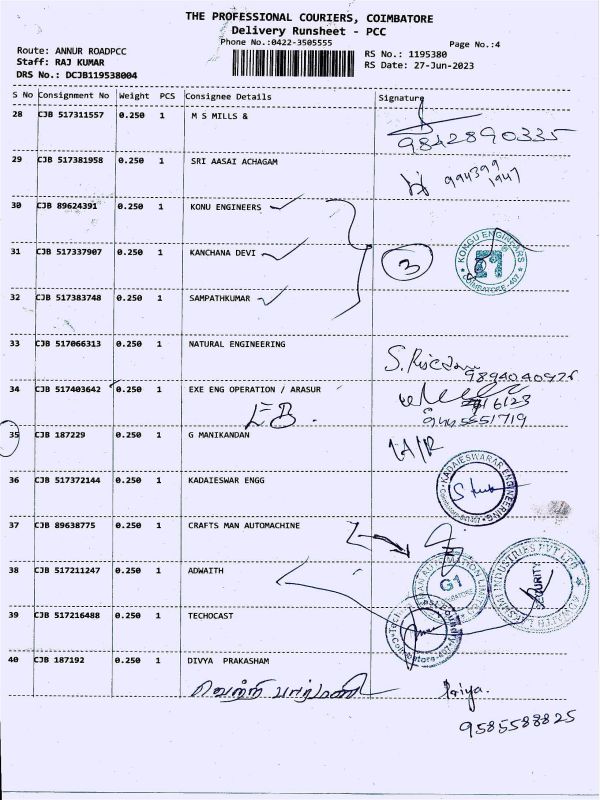 THE PROFESSIONAL COURIERS, COIMBATORE
Delivery Runsheet - PCC
Phone No.:0422-3505555
Page No.:4
Route: ANNUR ROADPCC
RS No.: 1195380
Staff: RAJ KUMAR
RS Date: 27-Jun-2023
DRS No.: DCJB119538004
S No Consignment No Weight PCS Consignee Details Signature
28 CJB 517311557 0.250 1 M S MILLS &
9842890335
29 CJB 517381958 0.250 1 SRI AASAI ACHAGAM
994399
1947
30 CJB 89624391 0.250 1 KONU ENGINEERS
31 CJB 517337907 0.250 1 KANCHANA DEVI 3
KONGU ENGINEERS
COIMBATORE-407
32 CJB 517383748 0.250 1 SAMPATHKUMAR
33 CJB 517066313 0.250 1 NATURAL ENGINEERING
34 CJB 517403642 0.250 1 EXE ENG OPERATION / ARASUR
EB.
35 CJB 187229 0.250 1 G MANIKANDAN
36 CJB 517372144 0.250 1 KADAIESWAR ENGG
KADAIESWARAR ENGINEERING
37 CJB 89638775 0.250 1 CRAFTS MAN AUTOMACHINE
38 CJB 517211247 0.250 1 ADWAITH
G1
SECURITY
39 CJB 517216488 0.250 1 TECHOCAST
40 CJB 187192 0.250 1 DIVYA PRAKASHAM
வெற்றி Priya.
9585588825